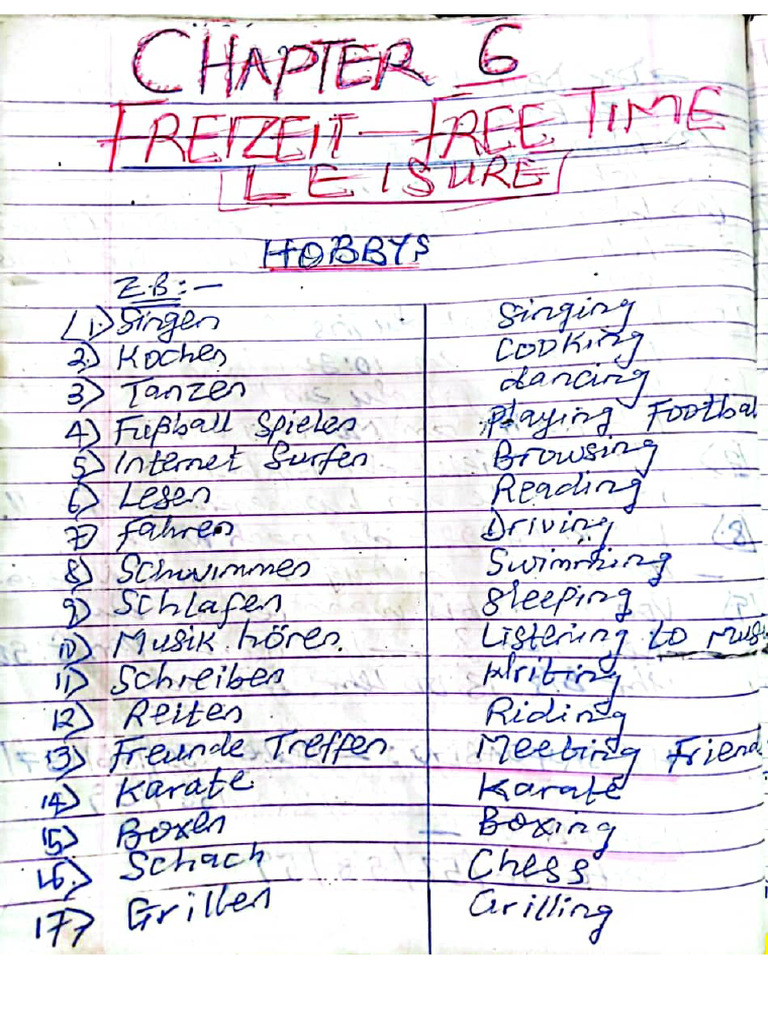 CHAPTER 6
FREIZEIT — FREE TIME
LEISURE
HOBBYS
Z.B:-
1) Singen Singing
2) Kochen Cooking
3) Tanzen dancing
4) Fußball Spielen Playing Footbal
5) Internet Surfen Browsing
6) Lesen Reading
7) fahren Driving
8) Schwimmen Swimming
9) Schlafen Sleeping
10) Musik hören. Listening to Mus
11) Schreiben Writing
12) Reiten Riding
13) Freunde Treffen Meeting Friend
14) Karate Karate
15) Boxen Boxing
16) Schach Chess
17) Grillen Grilling